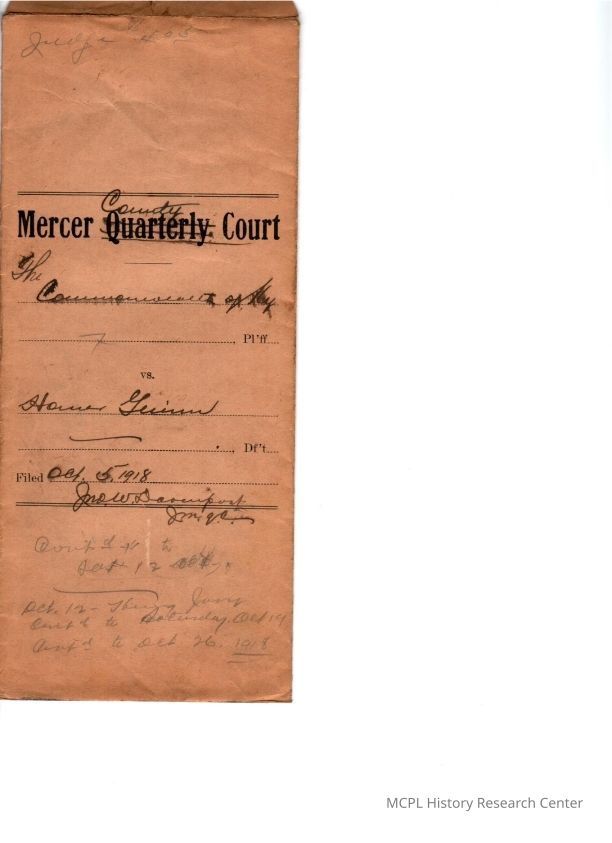 Judge
County
Mercer Quarterly Court
The
Commonwealth of Ky
Pl'ff
vs.
Homer Guinn
Df't
Filed Oct. 5, 1918
Jno. W. Davenport
Cont'd to
Sat 12 Oct
Oct. 12 - Hung Jury
Cont'd to Saturday Oct 19
Cont'd to Oct 26, 1918
MCPL History Research Center